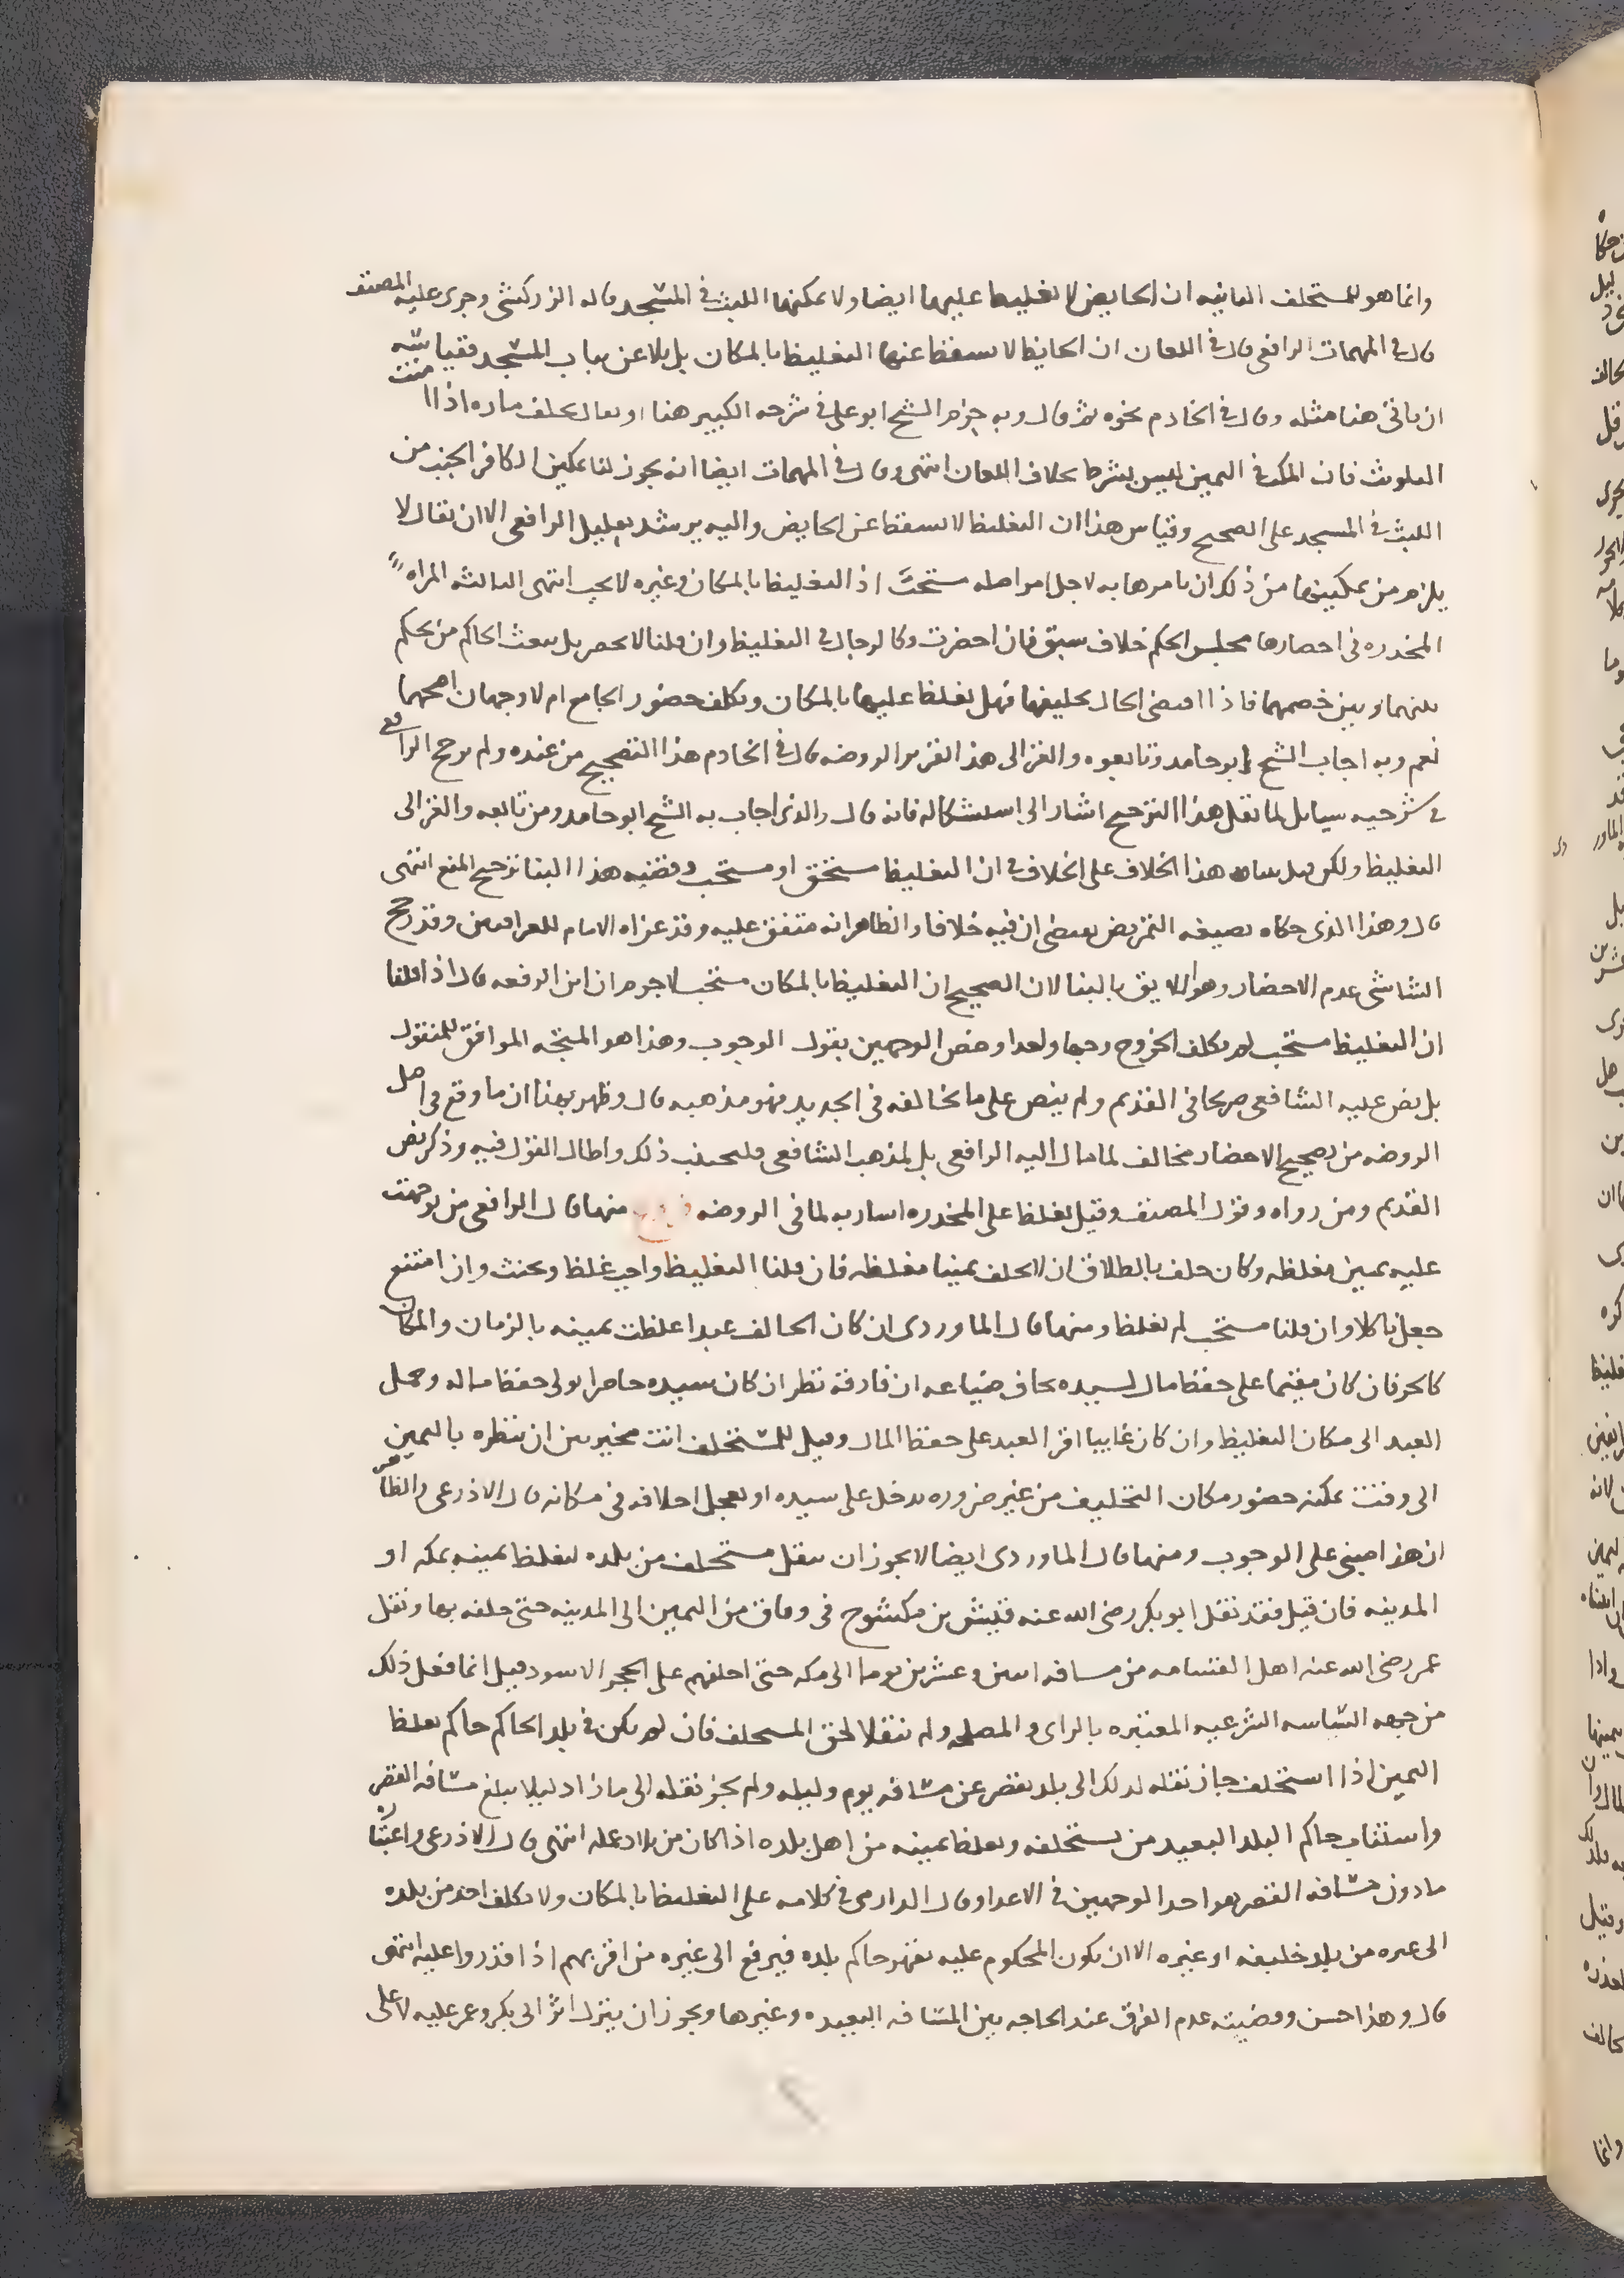 وانما هو للمستحلف الثانيه ان الحايض لا تغليظ عليها ايضا ولا تمكنها اللبث في المسجد قاله الزركشي وجرى عليه المصنف
قال في المهمات الرافعي قال في اللعان ان الحايض لا يسقط عنها التغليظ بالمكان بل يلاعن بباب المسجد فقياسه
ان ياتي هنا مثله وقال في الخادم نحوه ثم قال وبه جزم الشيخ ابو علي في شرحه الكبير هنا او يقال تحلف ماره اذا امنت
التلويث فان المكث في اليمين ليس بشرط بخلاف اللعان انتهى وقال في المهمات ايضا انه يجوز لنا تمكين الكافر الجنب من
اللبث في المسجد على الصحيح وقياس هذا ان التغليظ لا يسقط عن الحايض واليه يرشد تعليل الرافعي الا ان يقال لا
يلزم من تمكينها من ذلك ان نامرها به لاجل امر اصله مستحب اذ التغليظ بالمكان وغيره لا يجب انتهى الثالثه المراه
المخدره في احضارها مجلس الحكم خلاف سبق فان احضرت فكالرجال في التغليظ وان قلنا لا تحضر بل يبعث الحاكم من يحكم
بينها وبين خصمها فاذا اقتضى الحال تحليفها فهل يغلظ عليها بالمكان وتكلف حضور الجامع ام لا وجهان اصحهما
نعم وبه اجاب الشيخ ابو حامد وتابعوه والغزالي هذ الفزس الروضه قال في الخادم هذا التصحيح من عنده ولم يرجح الرافعي
في شرحيه سيا بل لما نقل هذا الترجيح اشار الى استشكاله فانه قال والذي اجاب به الشيخ ابو حامد ومن تابعه والغزالي
التغليظ ولكن قيل بناء هذا الخلاف على الخلاف في ان التغليظ مستحق او مستحب وقضيه هذا البنا ترجيح المنع انتهى
قال وهذا الذي حكاه بصيغه التمريض يقتضي ان فيه خلافا والظاهر انه متفق عليه وقد عزاه الامام للعراقيين وقد رجح
الشاشي عدم الاحضار وهو اللايق بالبنا لان الصحيح ان التغليظ بالمكان مستحب لا جرم ان ابن الرفعه قال اذا قلنا
ان التغليظ مستحب لم تكلف الخروج وجها واحدا وخص الوجهين بقول الوجوب وهذا هو المتجه الموافق للمنقول
بل نص عليه الشافعي صريحا في القديم ولم ينص على ما يخالفه في الجديد فهو مذهبه قال وظهر بهذا ان ما وقع في اصل
الروضه من تصحيح الاحضار مخالف لما مال اليه الرافعي بل لمذهب الشافعي فليجتنب ذلك واطال القول فيه وذكر نص
القديم ومن رواه وقول المصنف وقيل يغلظ على المخدره اشار به لما في الروضه منها قال الرافعي من توجهت
عليه يمين مغلظه وكان حلف بالطلاق ان لا يحلف يمينا مغلظه فان قلنا التغليظ واجب غلظ ويحنث وان امتنع
جعل ناكلا وان قلنا مستحب لم تغلظ ومنها قال الماوردي ان كان الحالف عبدا غلظت يمينه بالزمان والمكان
كالحر فان كان مقيما على حفظ مال لسيده يخاف ضياعه ان فارقه نظر ان كان سيده حاضرا تولى حفظ ماله وحمل
العبد الى مكان التغليظ وان كان غايبا اقر العبد على حفظ المال وقيل للمستحلف انت مخير بين ان تنظره باليمين
الى وقت يمكنه حضور مكان التحليف من غير ضروره تدخل على سيده او تعجل احلافه في مكانه قال الاذرعي والظاهر
ان هذا مبني على الوجوب ومنها قال الماوردي ايضا لا يجوز ان ينقل مستحلف من بلده لتغلظ يمينه بمكه او
المدينه فان قيل فقد نقل ابو بكر رضي الله عنه قيس بن مكشوح في وفاق من اليمن الى المدينه حتى حلفه بها ونقل
عمر رضي الله عنه اهل القسامه من مسافه اثنين وعشرين يوما الى مكه حتى احلفهم على الحجر الاسود قيل انما فعل ذلك
من جهه السياسه الشرعيه المعتبره بالراي والمصلحه ولم ينقلا لحق المستحلف فان لم يكن في بلد الحاكم حاكم يغلظ
اليمين اذا استحلف جاز نقله لذلك الى بلد يقصر عن مسافه يوم وليله ولم يجز نقله الى ما زاد ليلا يبلغ مسافه القصر
واستناب حاكم البلد البعيد من يستحلفه ويغلظ يمينه من اهل بلده اذا كان من بلاد عمله انتهى قال الاذرعي واعتباره
ما دون مسافه القصر هو احد الوجهين في الاعدا وقال الدارمي في كلامه على التغليظ بالمكان ولا يكلف احد من بلده
الى غيره من بلد خليفه او غيره الا ان يكون المحكوم عليه يقهر حاكم بلده فيرفع الى غيره من اقربهم اذا قدروا عليه انتهى
قال وهذا حسن وقضيته عدم الفرق عند الحاجه بين المسافه البعيده وغيرها ويجوز ان ينزل اثر ابي بكر وعمر عليه لا على